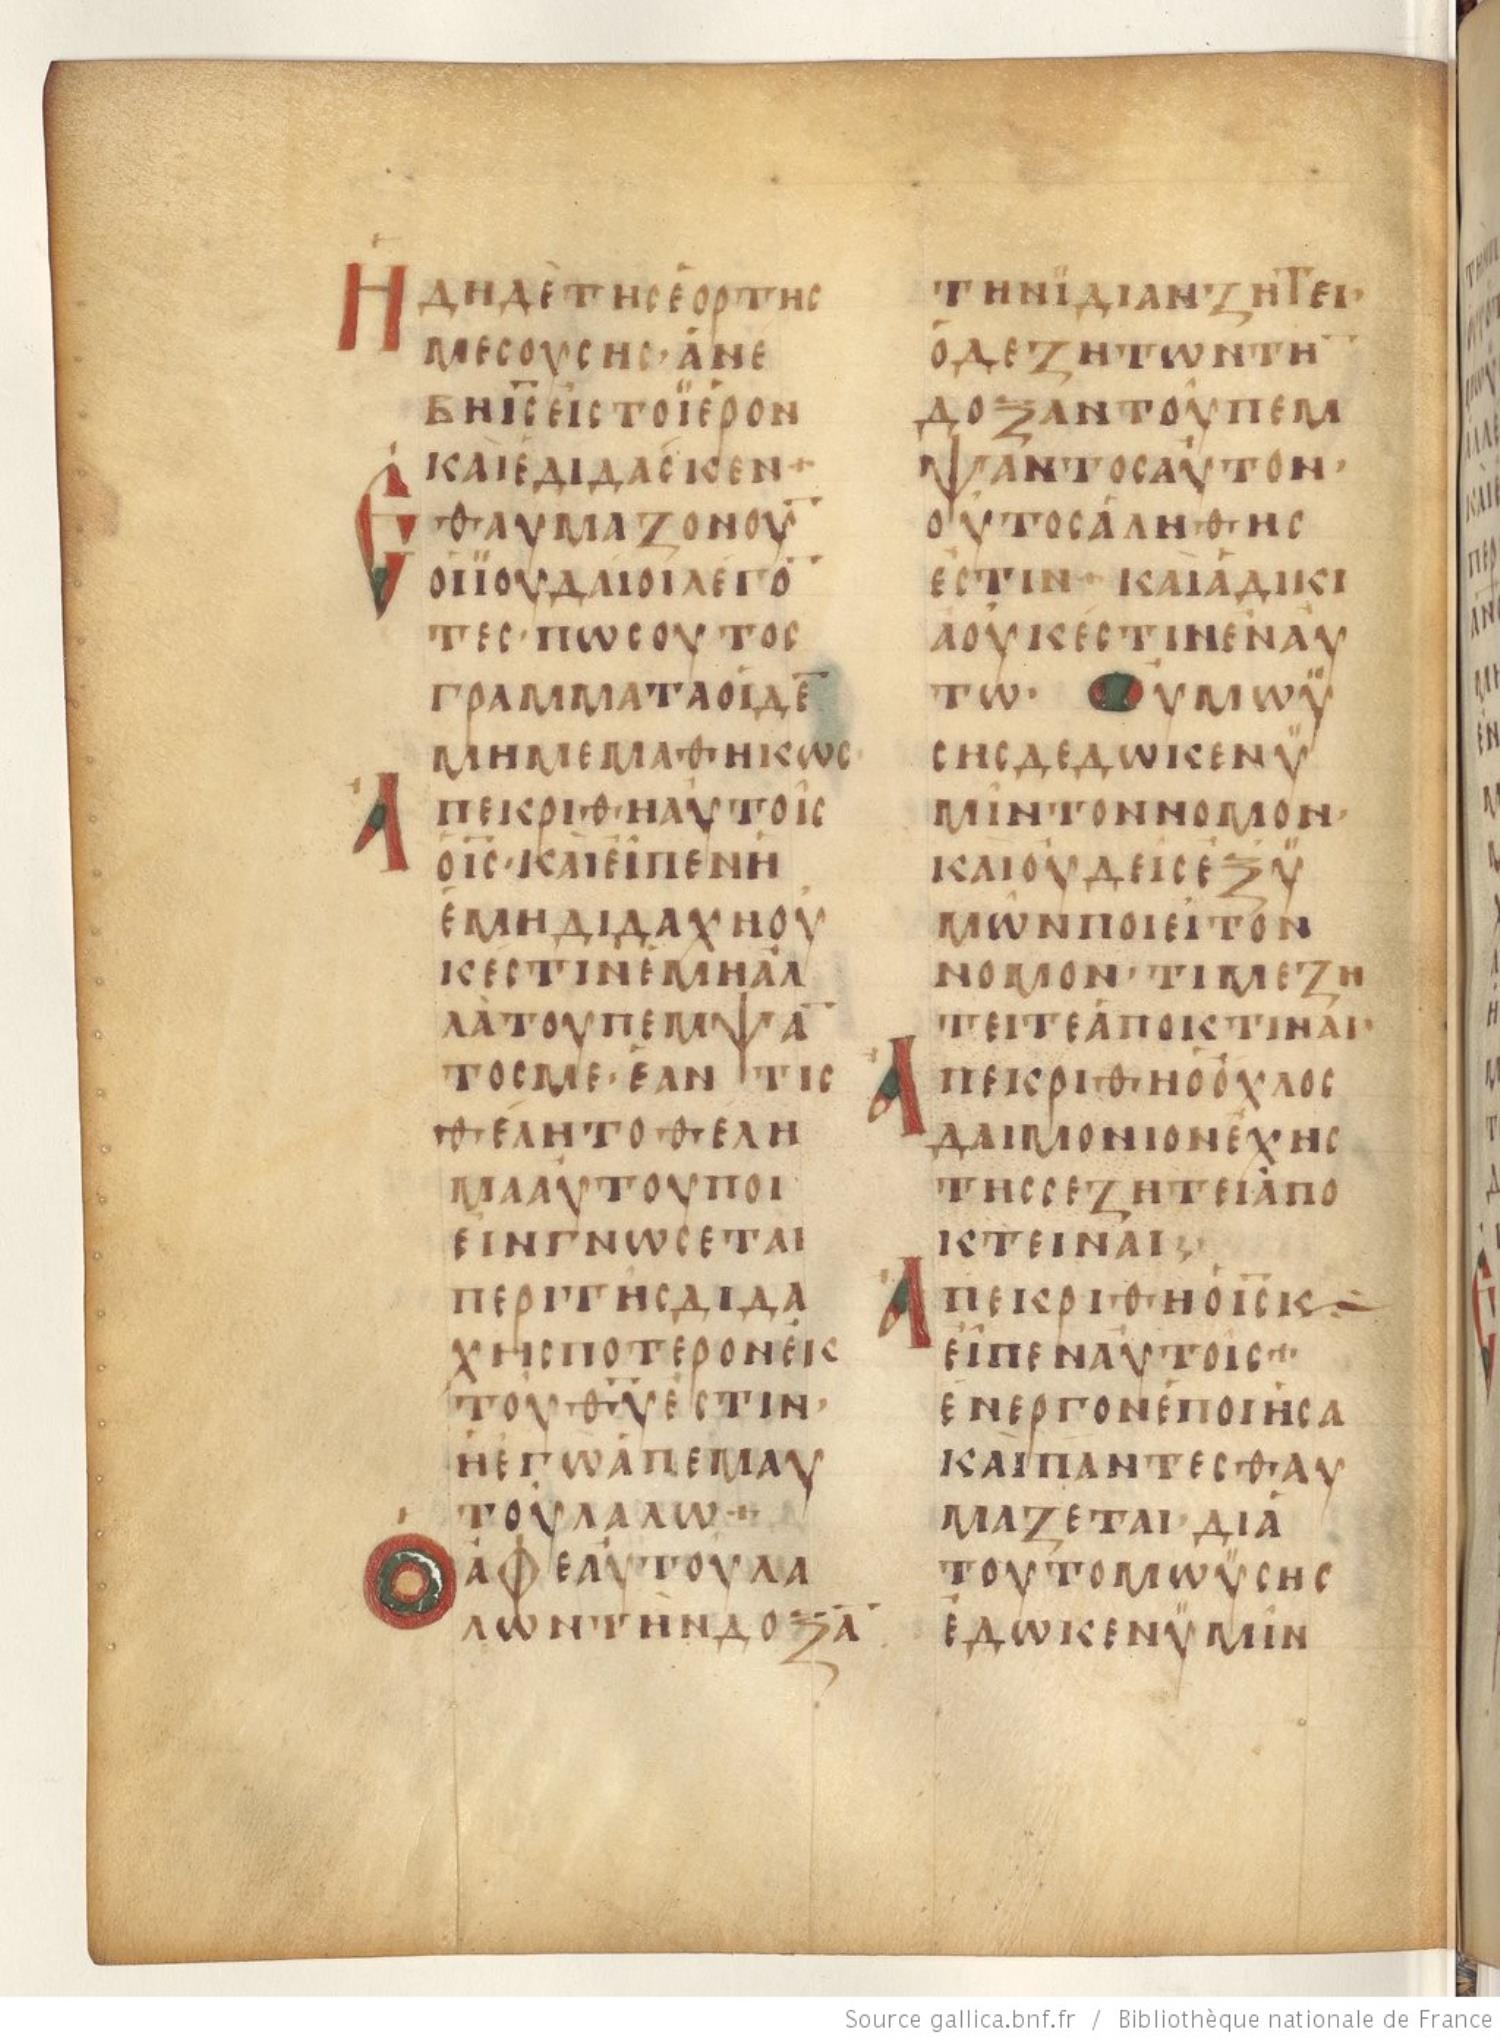 ΗΔΗΔΕΤΗСΕΟΡΤΗС
ΜΕСΟΥСΗС·ΑΝΕ
ΒΗΙ̅С̅ΕΙСΤΟΪΕΡΟΝ
ΚΑΙΕΔΙΔΑСΚΕΝ+
ΕΘΑΥΜΑΖΟΝΟΥ̅
ΟΙΪΟΥΔΑΙΟΙΛΕΓΟ̅
ΤΕС·ΠΩСΟΥΤΟС
ΓΡΑΜΜΑΤΑΟΙΔΕ̅
ΜΗΜΕΜΑΘΗΚΩС·
ΑΠΕΚΡΙΘΗΑΥΤΟΙС
ΟΙ̅С̅·ΚΑΙΕΙΠΕΝΗ
ΕΜΗΔΙΔΑΧΗΟΥ
ΚΕСΤΙΝΕΜΗΑΛ
ΛΑΤΟΥΠΕΜΨΑ̅
ΤΟСΜΕ·ΕΑΝ ΤΙС
ΘΕΛΗΤΟΘΕΛΗ
ΜΑΑΥΤΟΥΠΟΙ
ΕΙΝΓΝΩСΕΤΑΙ
ΠΕΡΙΤΗСΔΙΔΑ
ΧΗСΠΟΤΕΡΟΝΕΚ
ΤΟΥΘ̅Υ̅ΕСΤΙΝ·
ΗΕΓΩΑΠΕΜΑΥ
ΤΟΥΛΑΛΩ+
ΟΑΦΕΑΥΤΟΥΛΑ
ΛΩΝΤΗΝΔΟΞΑ̅
ΤΗΝΪΔΙΑΝΖΗΤΕΙ·
ΟΔΕΖΗΤΩΝΤΗ̅
ΔΟΞΑΝΤΟΥΠΕΜ
ΨΑΝΤΟСΑΥΤΟΝ·
ΟΥΤΟСΑΛΗΘΗС
ΕСΤΙΝ+ ΚΑΙΑΔΙΚΙ
ΑΟΥΚΕСΤΙΝΕΝΑΥ
ΤΩ· ΟΥΜΩΫ
СΗСΔΕΔΩΚΕΝΫ
ΜΙΝΤΟΝΝΟΜΟΝ·
ΚΑΙΟΥΔΕΙСΕΞΫ
ΜΩΝΠΟΙΕΙΤΟΝ
ΝΟΜΟΝ·ΤΙΜΕΖΗ
ΤΕΙΤΕΑΠΟΚΤΙΝΑΙ·
ΑΠΕΚΡΙΘΗΟΟΧΛΟС
ΔΑΙΜΟΝΙΟΝΕΧΗС
ΤΗССΕΖΗΤΕΙΑΠΟ
ΚΤΕΙΝΑΙ;
ΑΠΕΚΡΙΘΗΟΙ̅С̅Κ
ΕΙΠΕΝΑΥΤΟΙС+
ΕΝΕΡΓΟΝΕΠΟΙΗСΑ
ΚΑΙΠΑΝΤΕСΘΑΥ
ΜΑΖΕΤΑΙ·ΔΙΑ
ΤΟΥΤΟΜΩΫСΗС
ΕΔΩΚΕΝΫΜΙΝ
Source gallica.bnf.fr / Bibliothèque nationale de France